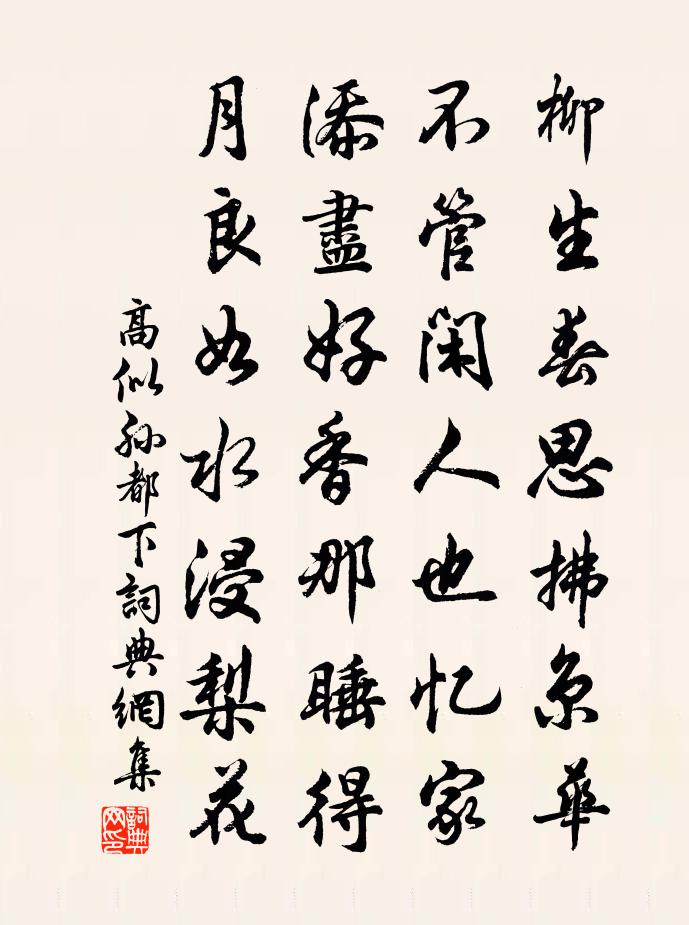 柳生春思拂京華
不管閑人也忆家
添盡好香那睡得
月良如水浸梨花
高似孫都下詞典網集
詞典网印